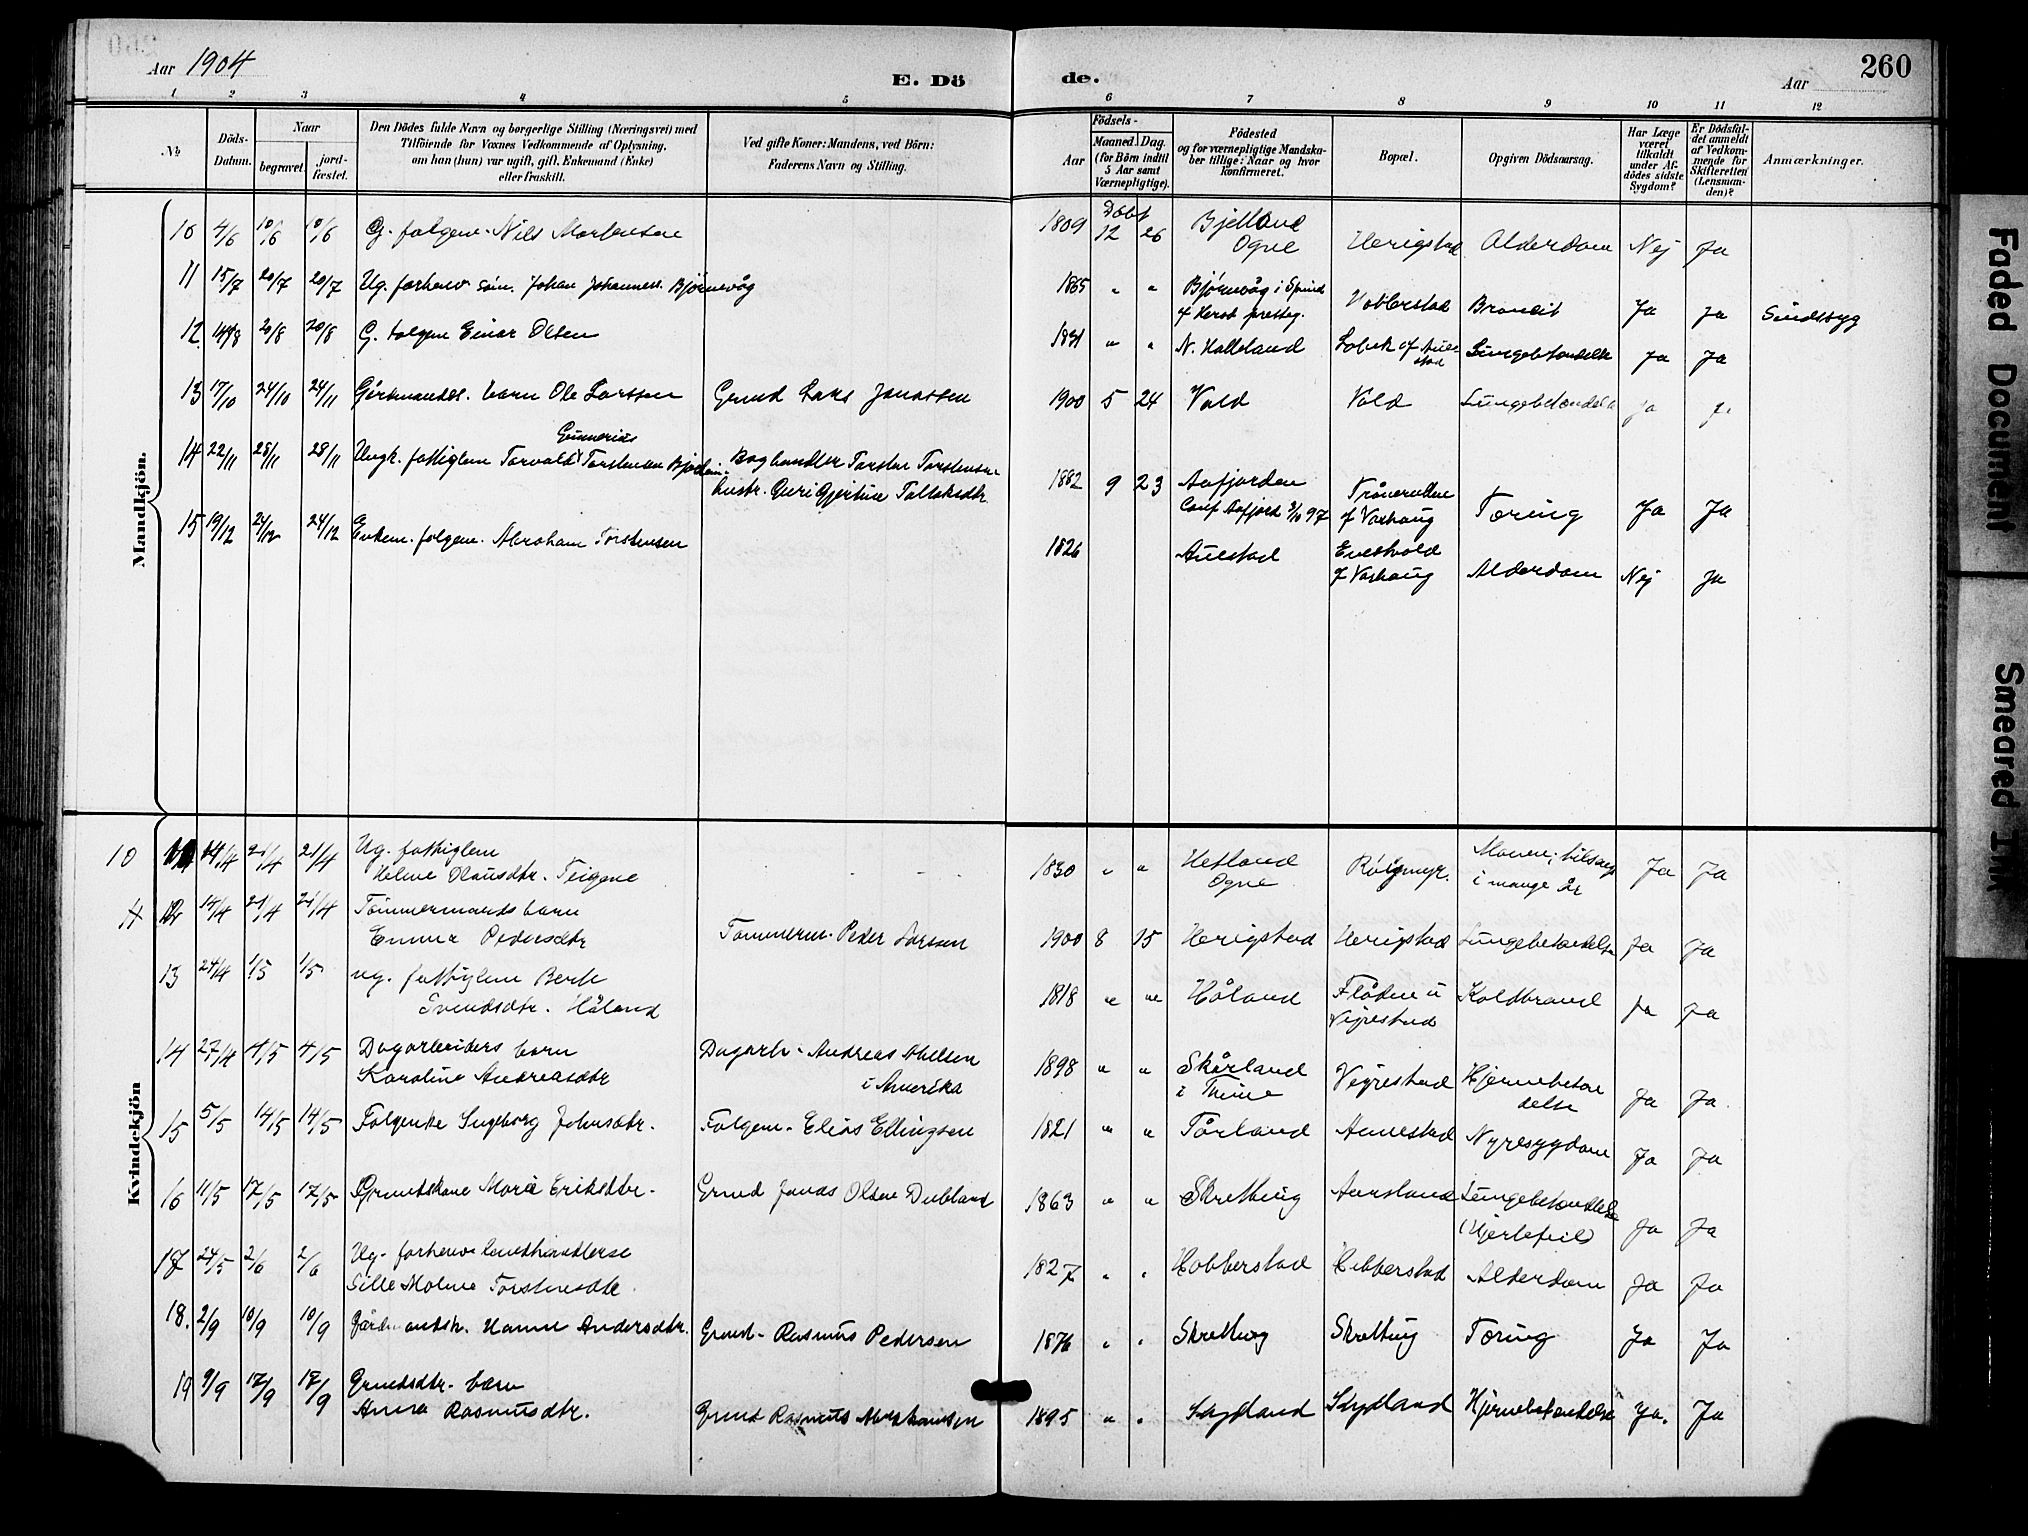 Aar 1904
E. Dö
de.
Aar
260
1 2 3 4 5 6 7 8 9 10 11 12
No
Döds-Datum.
Naar
begravet.
jord-fæstet.
Den Dödes fulde Navn og borgerlige Stilling (Næringsvei) med
Tilföiende for Voxnes Vedkommende af Oplysning,
om han (hun) var ugift, gift, Enkemand (Enke)
eller fraskilt.
Ved gifte Koner: Mandens, ved Börn:
Faderens Navn og Stilling.
Födsels-
Aar
Maaned. Dag.
(for Börn indtil
5 Aar samt
Værnepligtige).
Födested
og for værnepligtige Mandska-
ber tillige: Naar og hvor
konfirmeret.
Bopæl.
Opgiven Dödsaarsag.
Har Læge
været
tilkaldt
under Af-
dödes sidste
Sygdom?
Er Dödsfal-
det anmeldt
af Vedkom-
mende for
Skifteretten
(Lensman-
den)?
Anmærkninger.
Mandkjön.
10 4/6 10/6 10/6 G. folgem. Nils Mortensen 1809 Døbt 12 26 Bjelland Ogne Herigstad Alderdom Nej Ja
11 15/7 20/7 20/7 Ug. forhenv. Johan Johanness. Bjørnevåg 1865 " " Bjørnevåg i Spind Ja Ja Sindssyg
12 14/8 20/8 20/8 G. folgem Einar Olsen " " N. Halleland Lungebetændelse Ja Ja
13 17/10 24/10 24/11 Gårdmands. barn Ole Larssen Grmd Lars Jonassen 1900 5 24 Vold Vold Lungebetændelse Ja
14 22/11 28/11 28/11 Ungk. fattiglem Torvald Gunnerius Torstensen Boghandler Torsten Torstensen
hustr. Guri Gjertine Tolleksdtr 1882 9 23 Aafjorden
Conf Aafjord 3/10 97 af Varhaug Tæring Ja Ja
15 19/12 24/12 24/12 Enkem. folgem. Abraham Torstensen 1826 Auestad
af Varhaug Alderdom Nej Ja
Kvindekjön
10 14/4 21/4 21/4 Ug. fattiglem
Helene Olausdtr. Teigene 1830 " " Hetland
Ogne Røigmyr.
i mange år Ja Ja
11 12 14/4 21/4 21/4 Tømmermands barn
Emma Pedersdtr Tømmerm. Peder Larssen 1900 8 15 Herigstad Herigstad Lungebetændelse Ja Ja
13 24/4 1/5 1/5 ug. fattiglem Berte
Svendsdtr. Håland 1818 " " Håland
Vigrestad Koldbrand Ja Ja
14 27/4 4/5 4/5 Dagarbeiders barn
Karoline Andreasdtr Dagarb. Andreas Abelsen
i Amerika 1898 " " Skårland
i Thime Vigrestad Hjernebetæn
delse Ja Ja
15 5/5 14/5 14/5 Folgenke Ingeborg Johnsdtr. Folgem. Elias Ellingsen 1821 " " Tårland Auestad Nyresygdom Ja Ja
16 11/5 17/5 17/5 Grmdskone Maria Eriksdtr. Grmd Jonas Olsen Dubland 1863 " " Skretting Aarsland Lungebetændelse
(Hjertefeil) Ja Ja
17 24/5 2/6 2/6 Ug. forhenv. landhandlerske
Sille Malene Torstensdtr. 1827 " " Hobberstad Hobberstad Alderdom Ja Ja
18. 2/9 10/9 10/9 Gårdmandsk. Hanne Andersdtr. Grmd. Rasmus Pedersen 1876 " " Skretting Skretting Tæring Ja Ja
19 9/9 17/9 17/9 Grmdsdtr. barn
Anna Rasmusdtr. Grmd Rasmus Abrahamsen 1895 " " Stydland Stydland Hjernebetændelse Ja. Ja
Faded Document
Smeared Ink